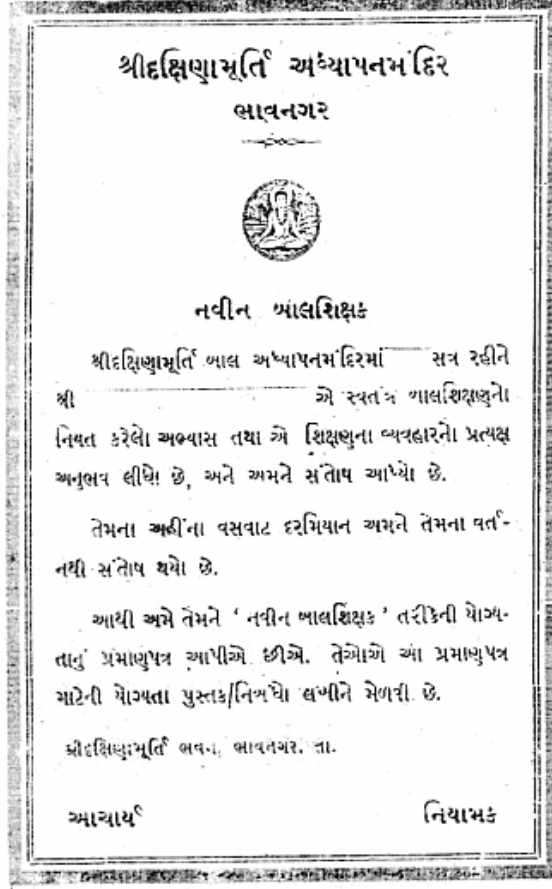 શ્રીદક્ષિણામૂર્તિ અધ્યાપનમંદિર
ભાવનગર
નવીન બાલશિક્ષક
શ્રીદક્ષિણામૂર્તિ બાલ અધ્યાપનમંદિરમાં સત્ર રહીને
શ્રી એ સ્વતંત્ર બાલશિક્ષણનો
નિયત કરેલો અભ્યાસ તથા એ શિક્ષણના વ્યવહારનો પ્રત્યક્ષ
અનુભવ લીધો છે, અને અમને સંતોષ આપ્યો છે.
તેમના અહીંના વસવાટ દરમિયાન અમને તેમના વર્ત-
નથી સંતોષ થયો છે.
આથી અમે તેમને ‘ નવીન બાલશિક્ષક ’ તરીકેની યોગ્ય-
તાનું પ્રમાણપત્ર આપીએ છીએ. તેઓએ આ પ્રમાણપત્ર
માટેની યોગ્યતા પુસ્તક/નિબંધો લખીને મેળવી છે.
શ્રીદક્ષિણામૂર્તિ ભવન, ભાવનગર. તા.
આચાર્ય નિયામક